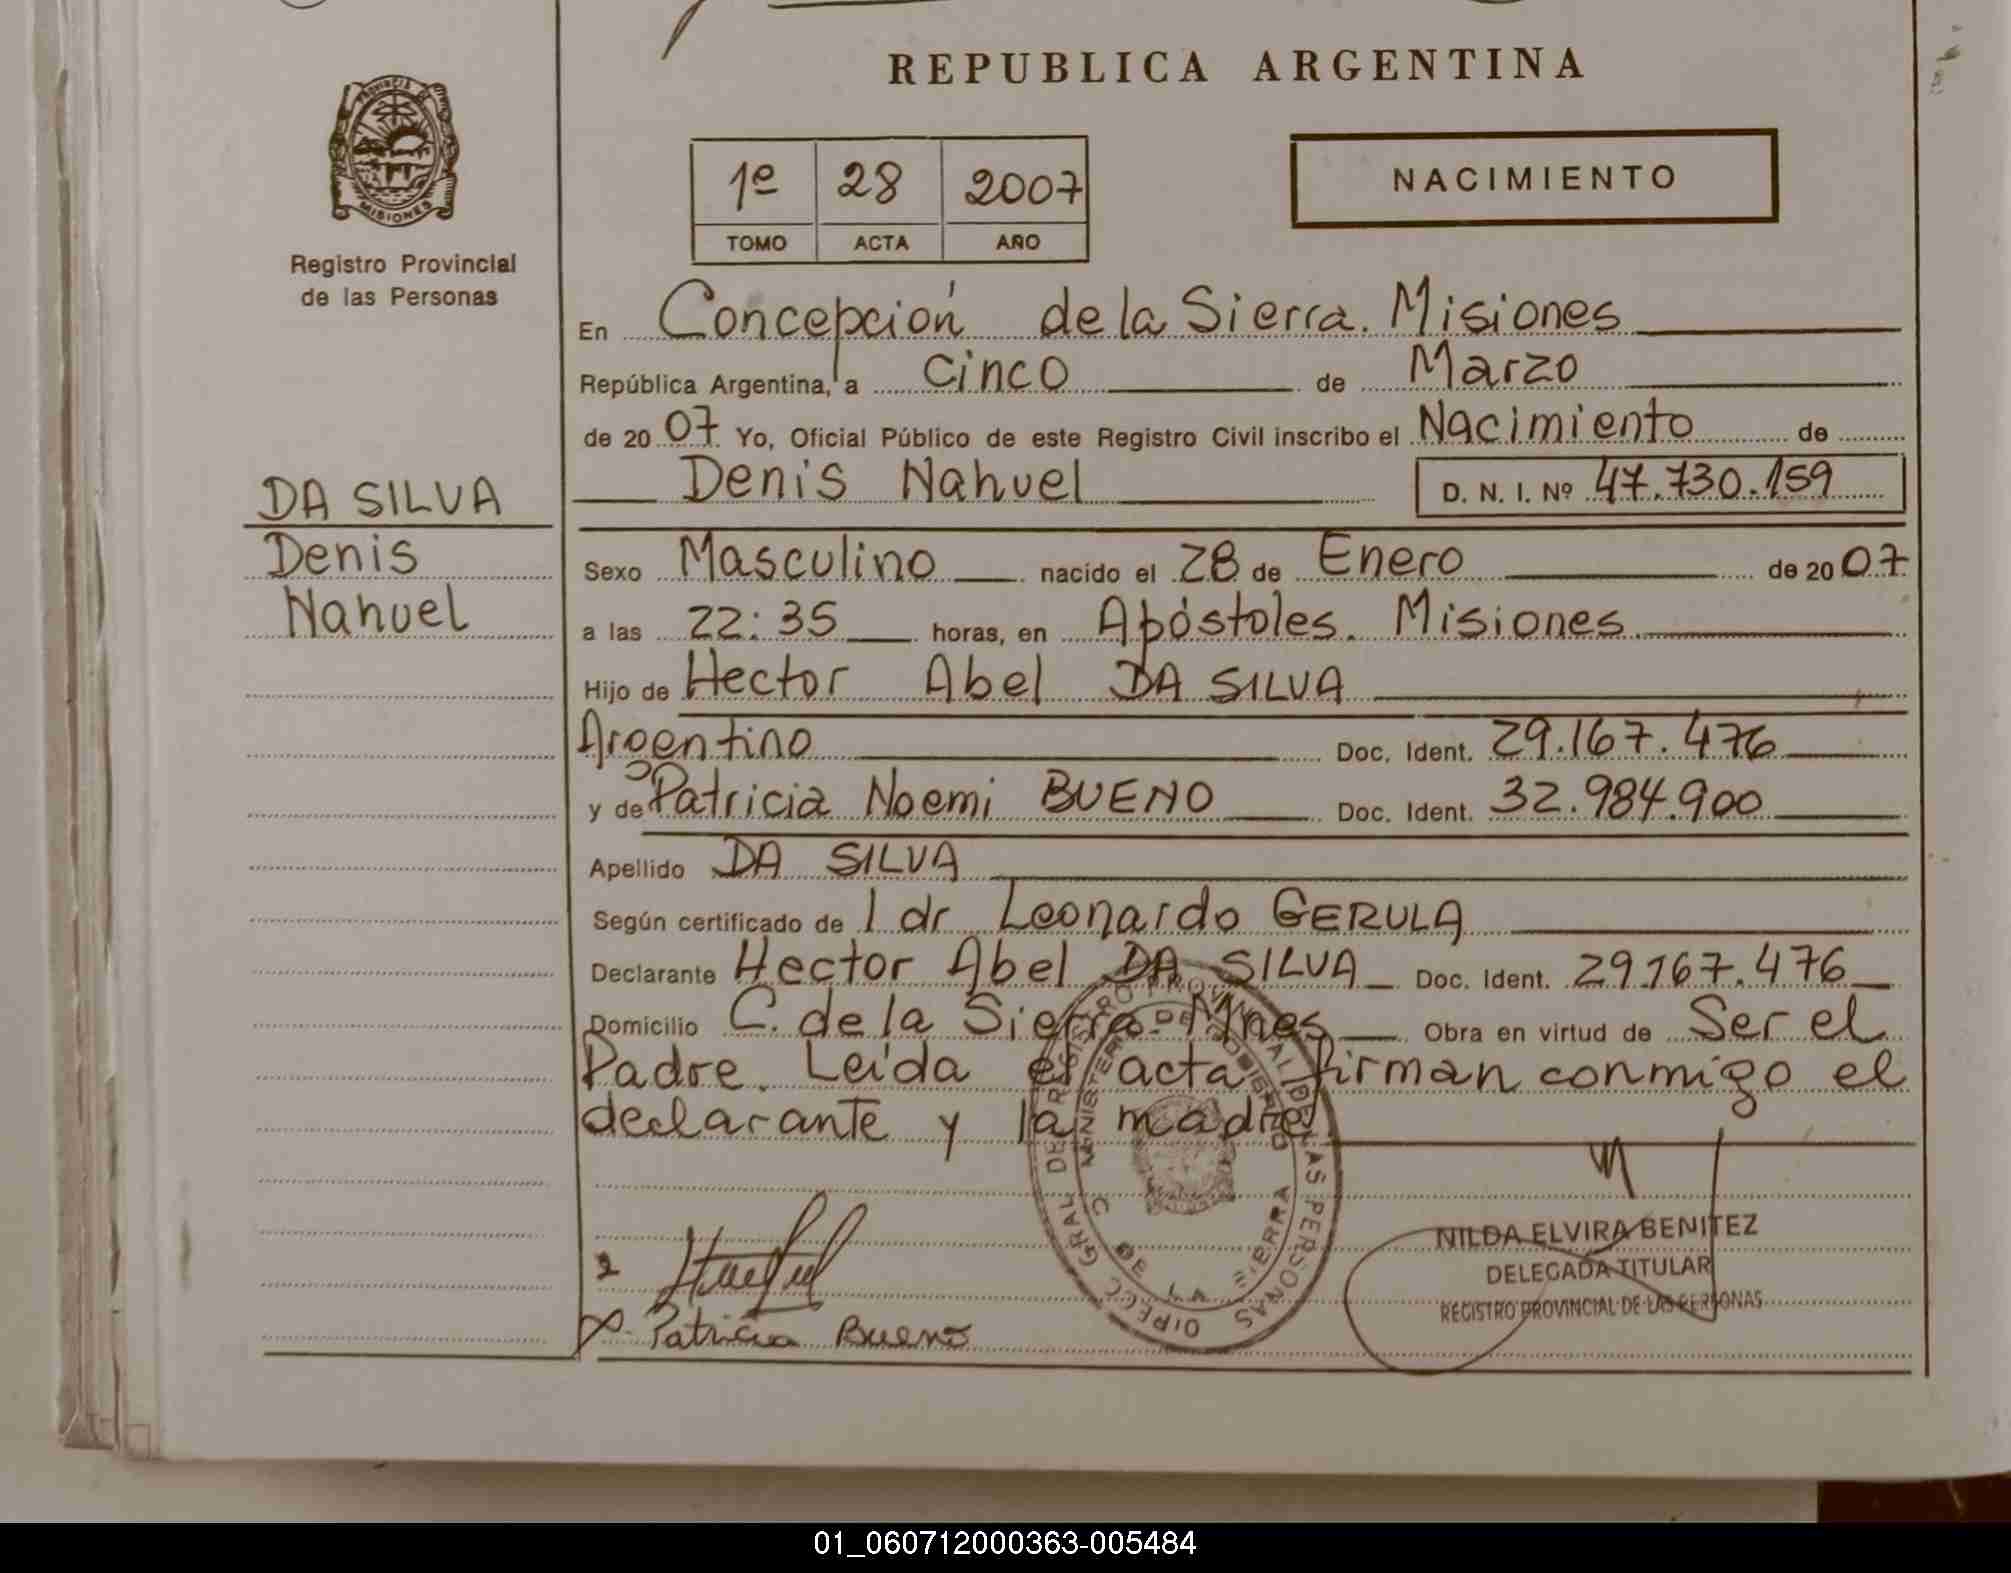 REPUBLICA ARGENTINA
PROVINCIA DE
MISIONES
Registro Provincial
de las Personas
1º 28 2007
TOMO ACTA AÑO
NACIMIENTO
En Concepción de la Sierra. Misiones
República Argentina, a cinco de Marzo
de 20 07 Yo, Oficial Público de este Registro Civil inscribo el Nacimiento de
Denis Nahuel D. N. I. Nº 47.730.159
DA SILVA
Denis
Nahuel
Sexo Masculino nacido el 28 de Enero de 20 07
a las 22:35 horas, en Apóstoles. Misiones
Hijo de Hector Abel DA SILVA
Argentino Doc. Ident. 29.167.476
y de Patricia Noemi BUENO Doc. Ident. 32.984.900
Apellido DA SILVA
Según certificado de l dr Leonardo GERULA
Declarante Hector Abel DA SILVA Doc. Ident. 29.167.476
Domicilio C. de la Sierra Mnes Obra en virtud de Ser el
Padre. Leída el acta firman conmigo el
declarante y la madre
Patricia Bueno
NILDA ELVIRA BENITEZ
DELEGADA TITULAR
REGISTRO PROVINCIAL DE LAS PERSONAS
01_060712000363-005484